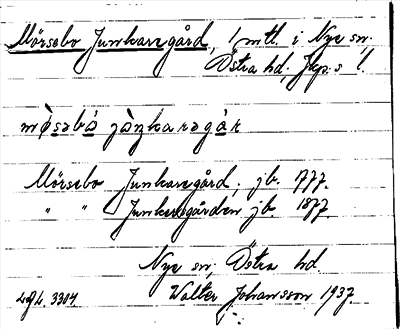 Mörsebo Junkaregård, 1 mtl. i Nye sn.
Östra hd; Jkp:s l.
mø̀səbó jàŋkaragár
Mörsebo Junkaregård. jb. 1777.
" " Junkersgården jb 1877
Nye sn, Östra hd.
Walter Johansson 1937.
Lgh. 3304